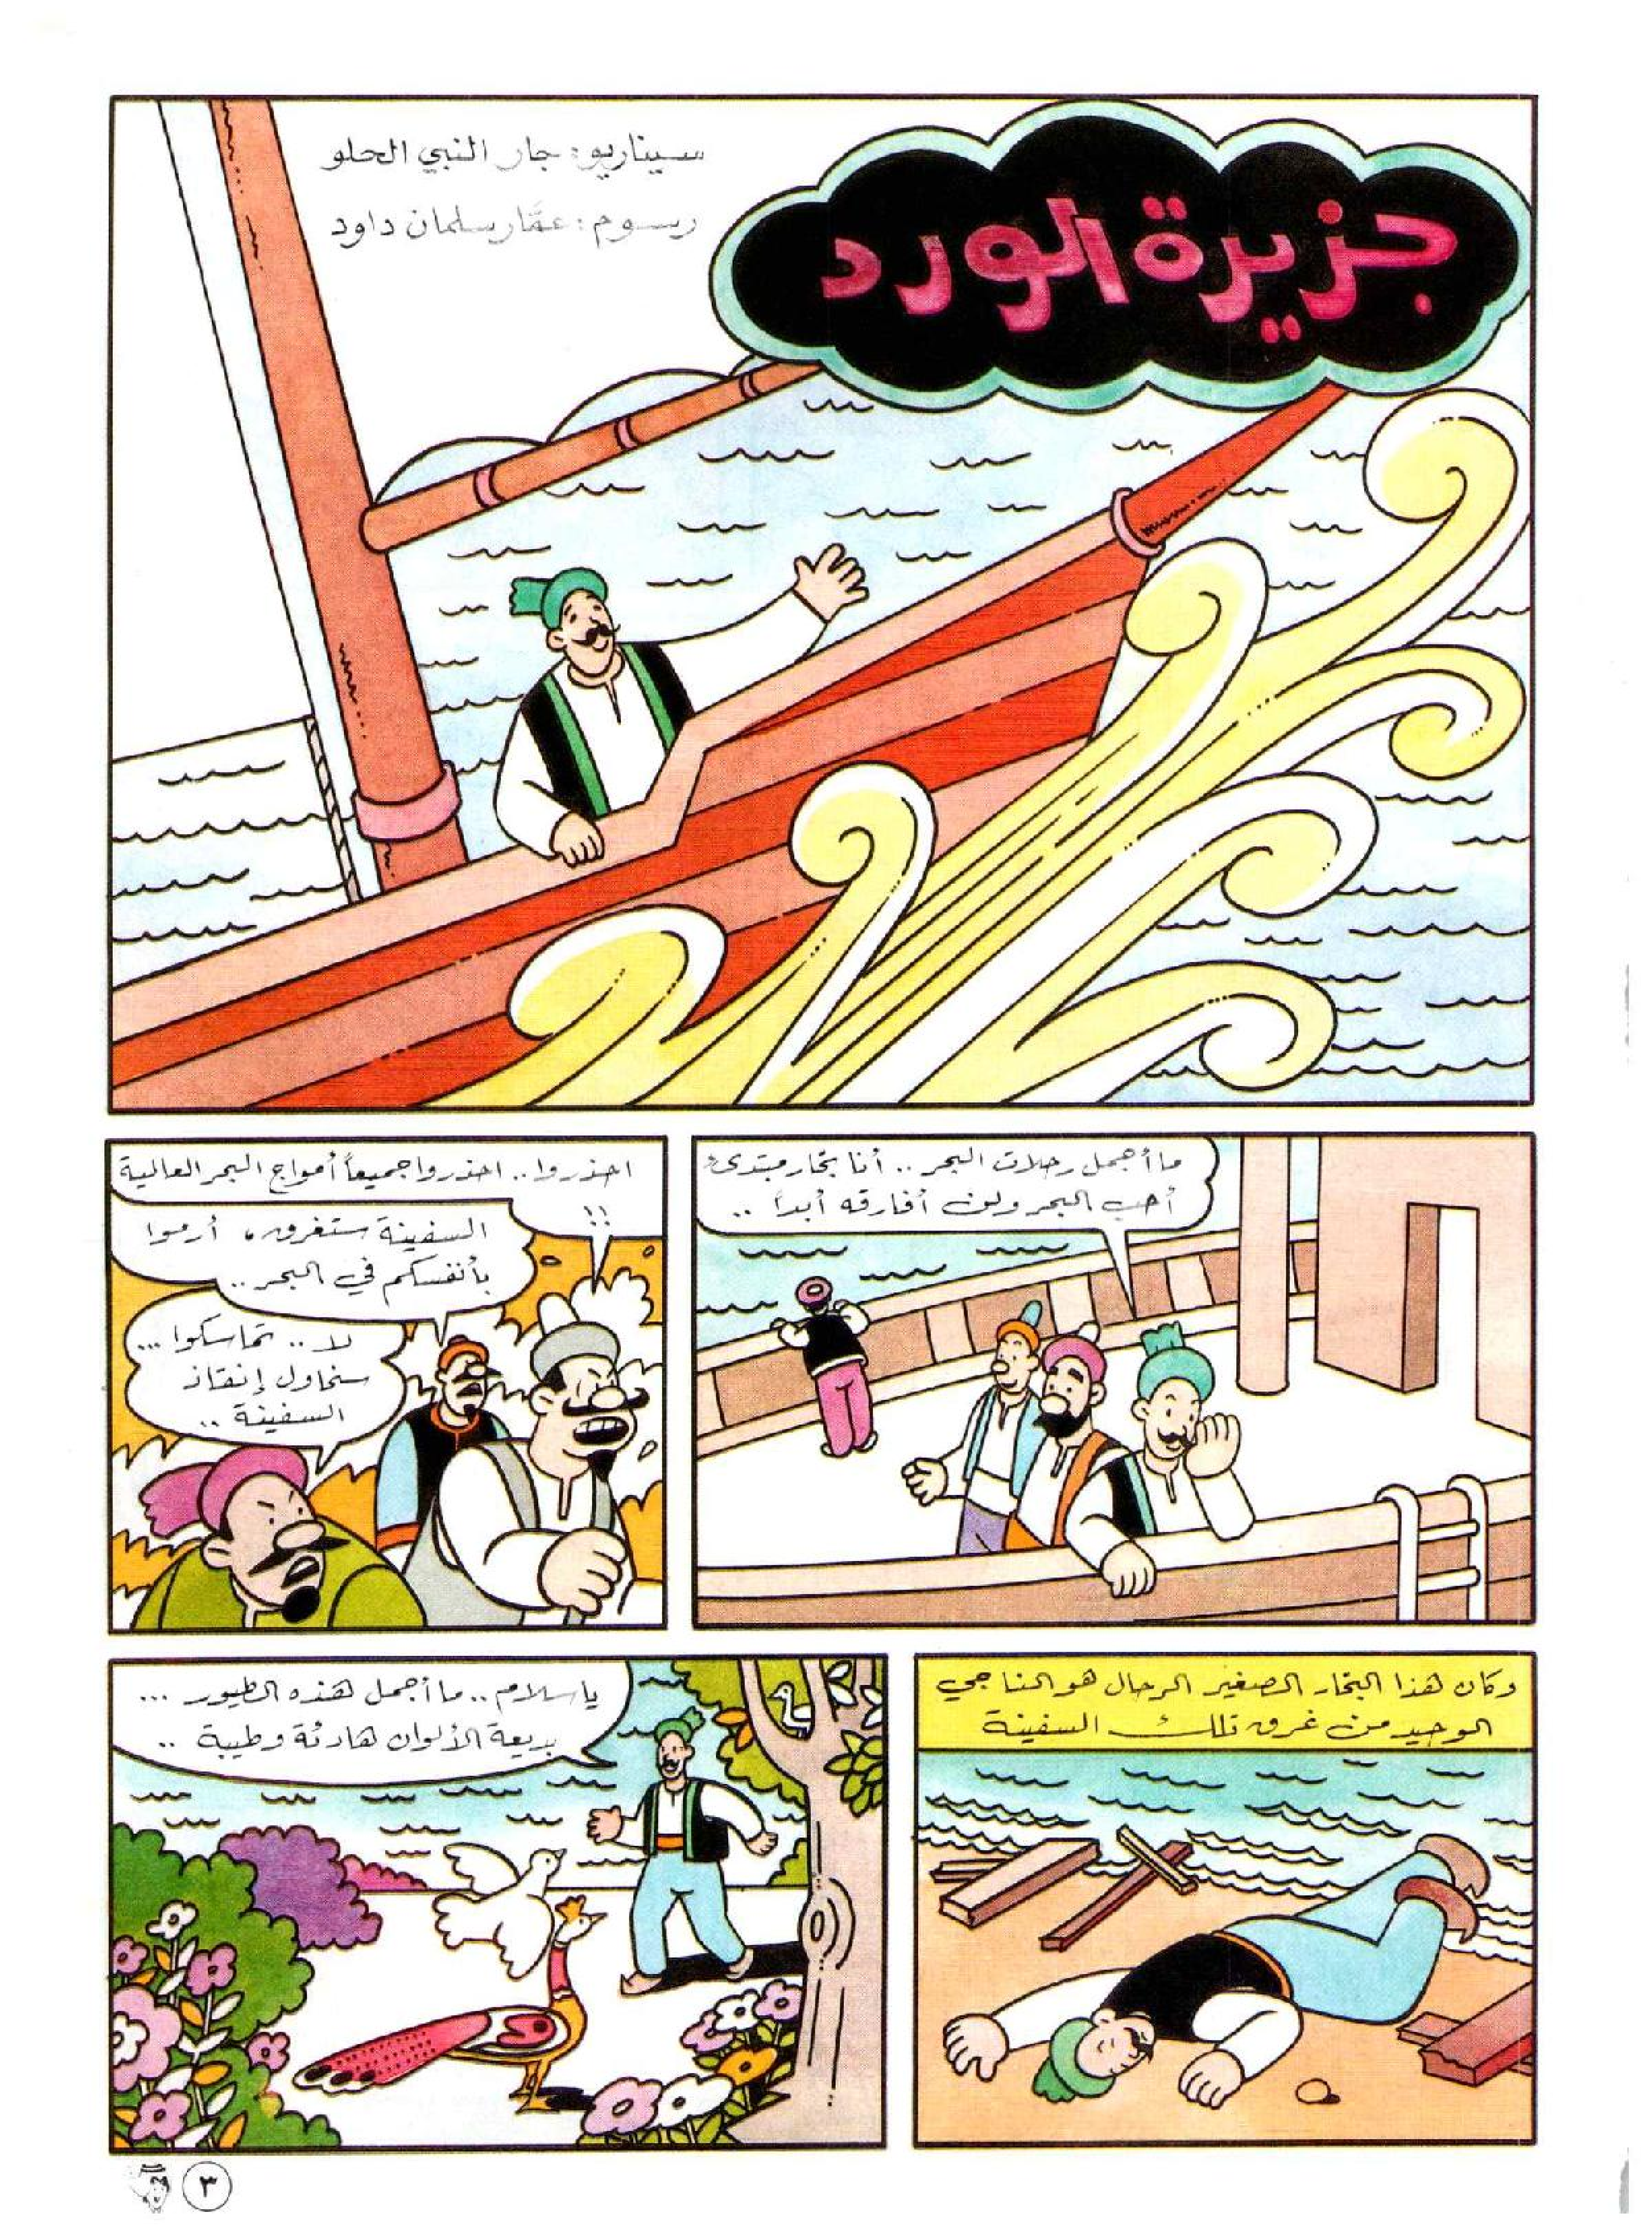 جزيرة الورد
سيناريو: جار النبي الحلو
رسوم: عمَّار سلمان داود
ما أجمل رحلات البحر .. أنا بحّار مبتدىء
أحب البحر ولن أفارقه أبداً ..
احذروا .. احذروا جميعاً أمواج البحر العالية
!!
السفينة ستغرق، أرموا
بأنفسكم في البحر ..
لا .. تماسكوا ...
سنحاول إنقاذ
السفينة ..
وكان هذا البحّار الصغير الرحال هو الناجي
الوحيد من غرق تلك السفينة
يا سلام .. ما أجمل هذه الطيور ...
بديعة الألوان هادئة وطيبة ..
٣